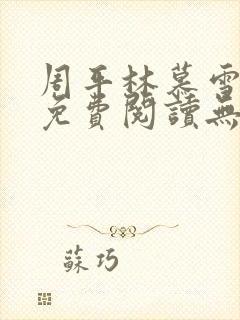 周平林慕雪
免費閱讀無
蘇巧